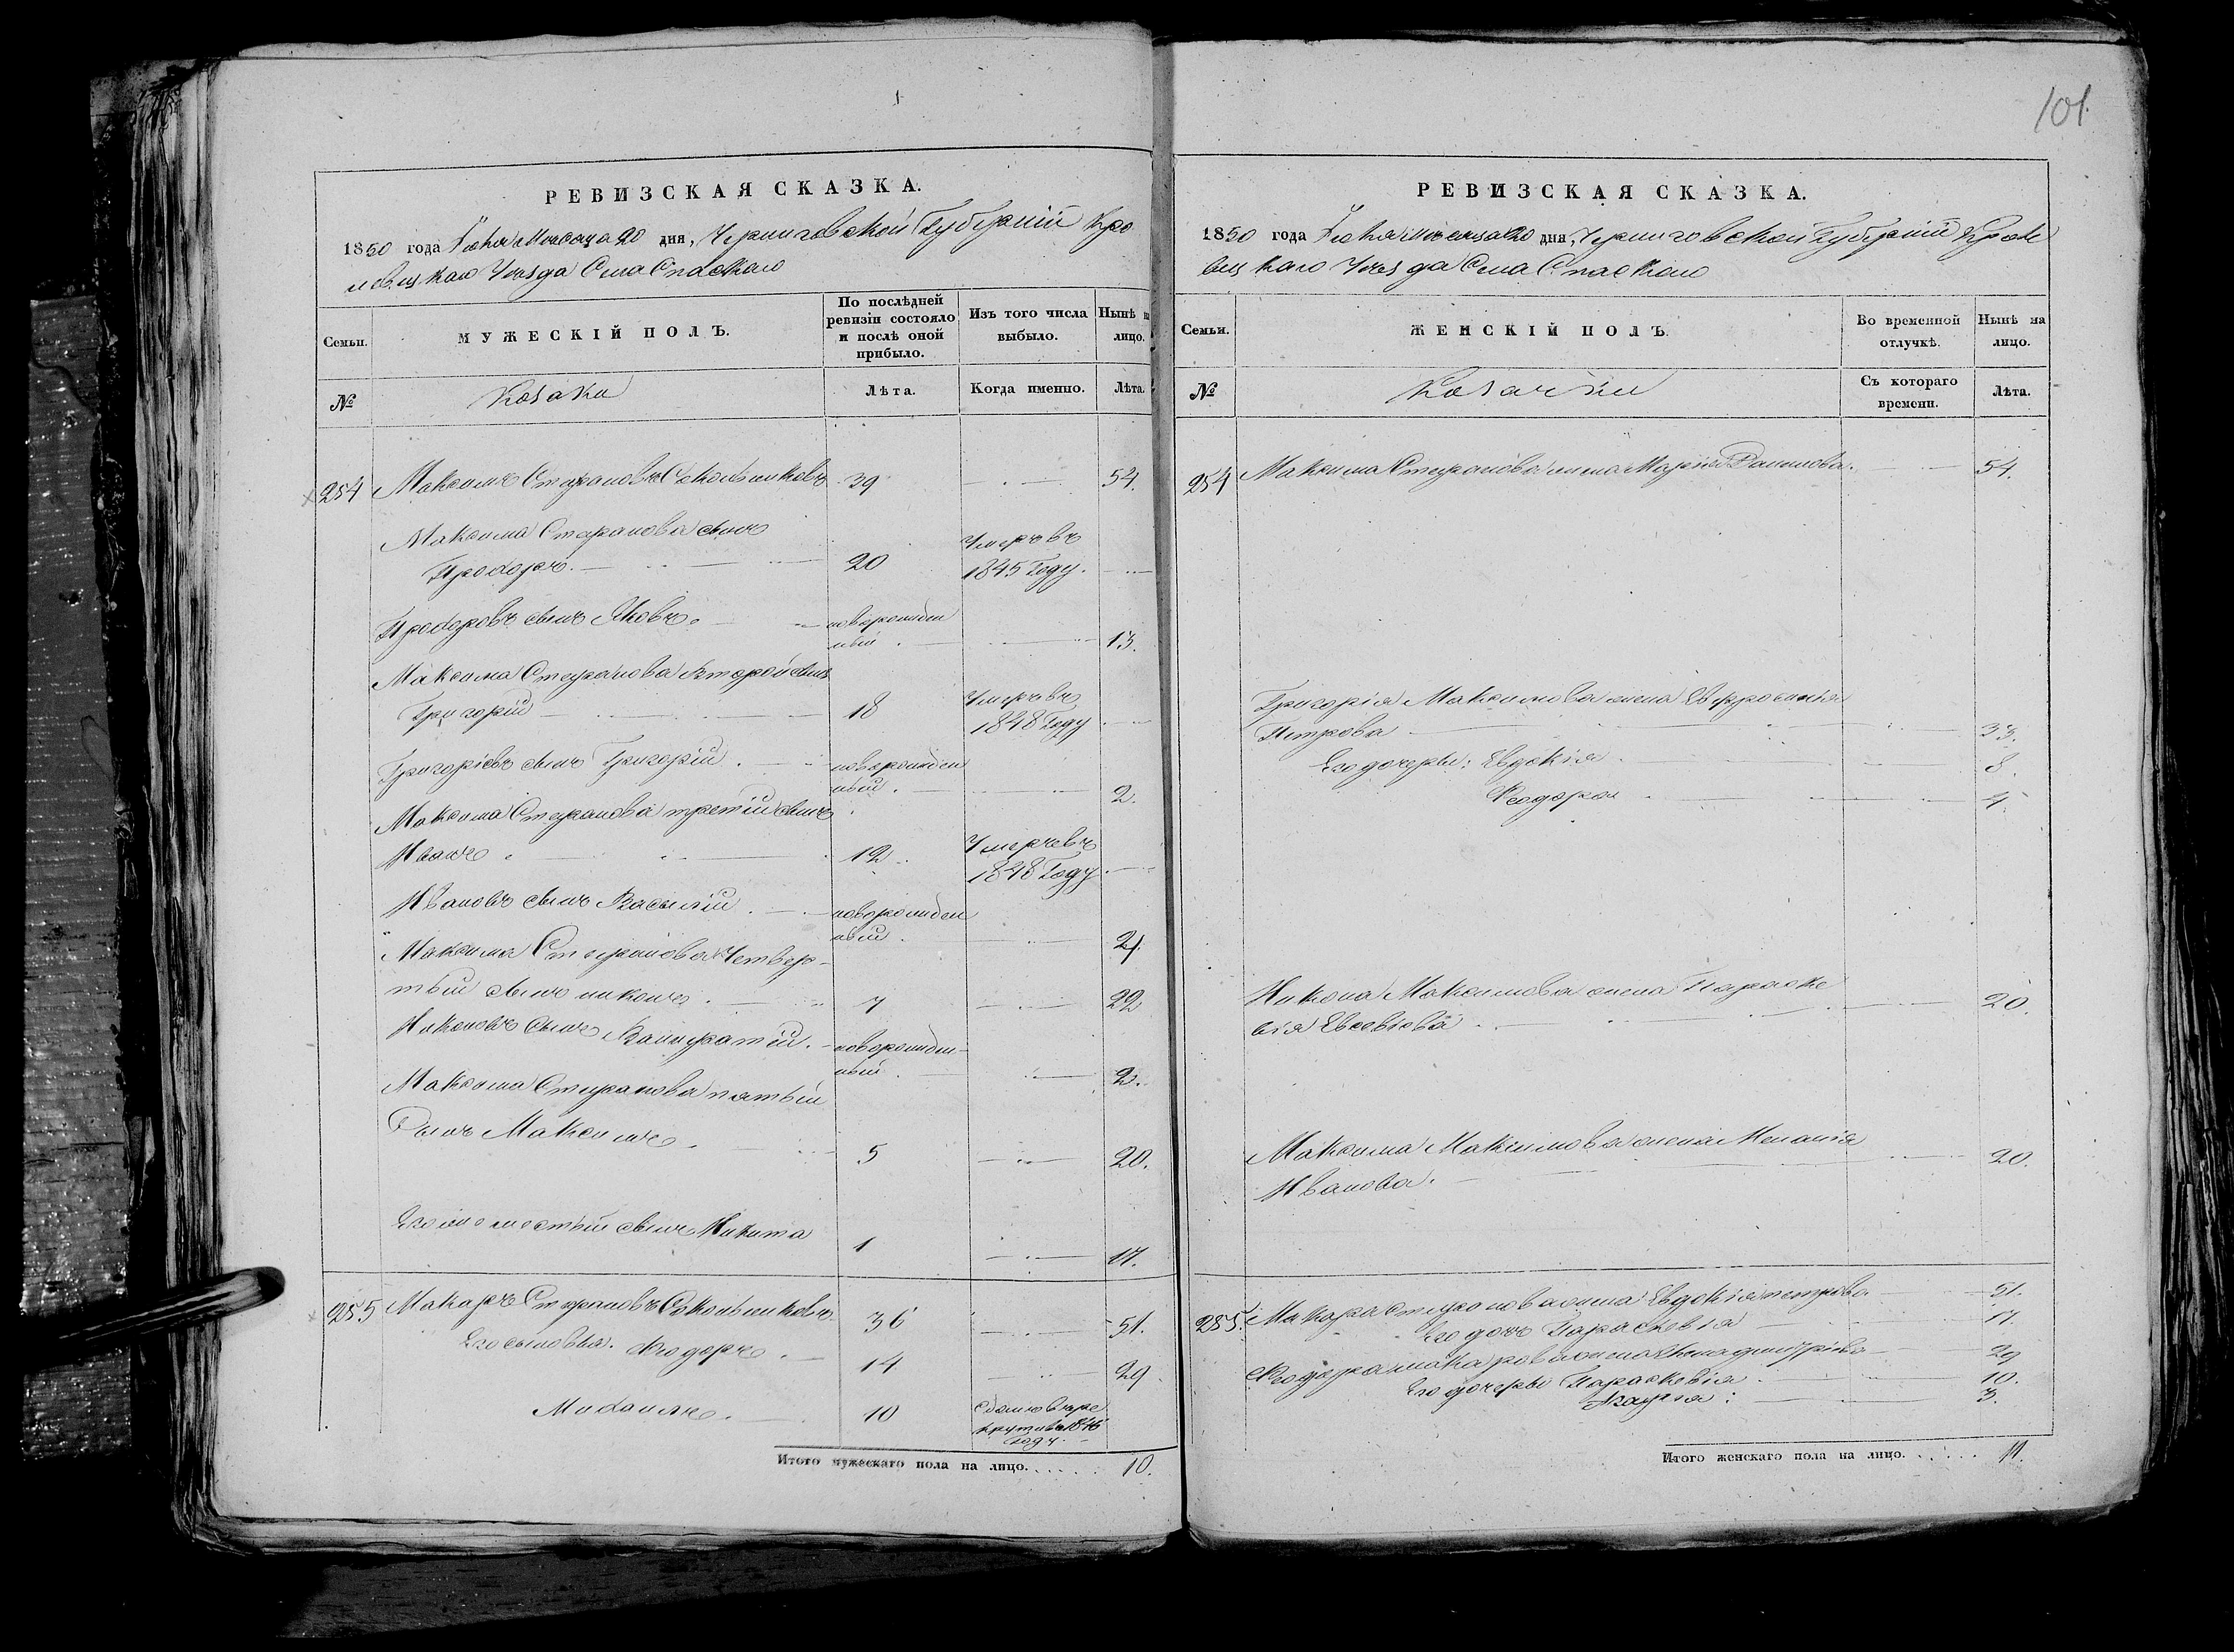 РЕВИЗСКАЯ СКАЗКА.
1850 года Июня Месяца 20 дня, Черниговской Губерніи Кро
левецкаго Уезда Села Спаскаго
Семьи.
МУЖЕСКІЙ ПОЛЪ.
По послѣдней ревизіи состояло и послѣ оной прибыло.
Изъ того числа выбыло.
Нынѣ на лицо.
№
Козаки
Лѣта.
Когда именно.
Лѣта.
254 Максимъ Стефановъ Сокольниковъ 39 54.
Максима Стефанова сынъ Умеръ въ
Прохоръ. 20 1845 Году.
Прохоровъ сынъ Яковъ. новорожден
ный. 13.
Максима Стефанова Второй сынъ
Григорій 18 Умеръ въ
1848 Году
Григоріевъ сынъ Григорій. новорожден
ный. 2.
Максима Стефанова третій сынъ
Иванъ 12. Умеръ въ
1848 Году
Ивановъ сынъ Василій. новорожден
ный.
Максима Стефанова Четвер-
тый сынъ никонъ. 7 22
Никоновъ Сынъ новорожден-
ный. 2.
Максима Стефанова пятый
Сынъ Максимъ. 5 20.
Его же шестый сынъ Никита 1
255 Макаръ Стефановъ Сокольниковъ 36 51.
Его сыновья. Ѳедоръ. 14 29.
Михаилъ. 10 Сданъ в ре
круты въ 1846
Году.
Итого мужескаго пола на лицо. 10.
101.
РЕВИЗСКАЯ СКАЗКА.
1850 года Июня Месяца 20 дня, Черниговской Губерніи Кроле
вецкаго Уезда Села Спаскаго
Семьи.
ЖЕНСКІЙ ПОЛЪ.
Во временной отлучкѣ.
Нынѣ на лицо.
№
Козачки
Съ котораго времени.
Лѣта.
254 Максима Стефанова жена Марія Данилова. 54.
Григорія Максимова жена Евфросинія
Петрова 33.
Его дочери: Евдокія. 8.
Ѳеодора 4.
Никона Максимова жена Параске
вія Евсевіева. 20.
Максима Максимова жена Меланія
Иванова. 20.
255. Макара Стефанова жена Евдокія петрова 51.
Его дочь Параскевія
Ѳеодора макарова жена 29
Его дочери Параскевія. 10.
3.
Итого женскаго пола на лицо. 11.